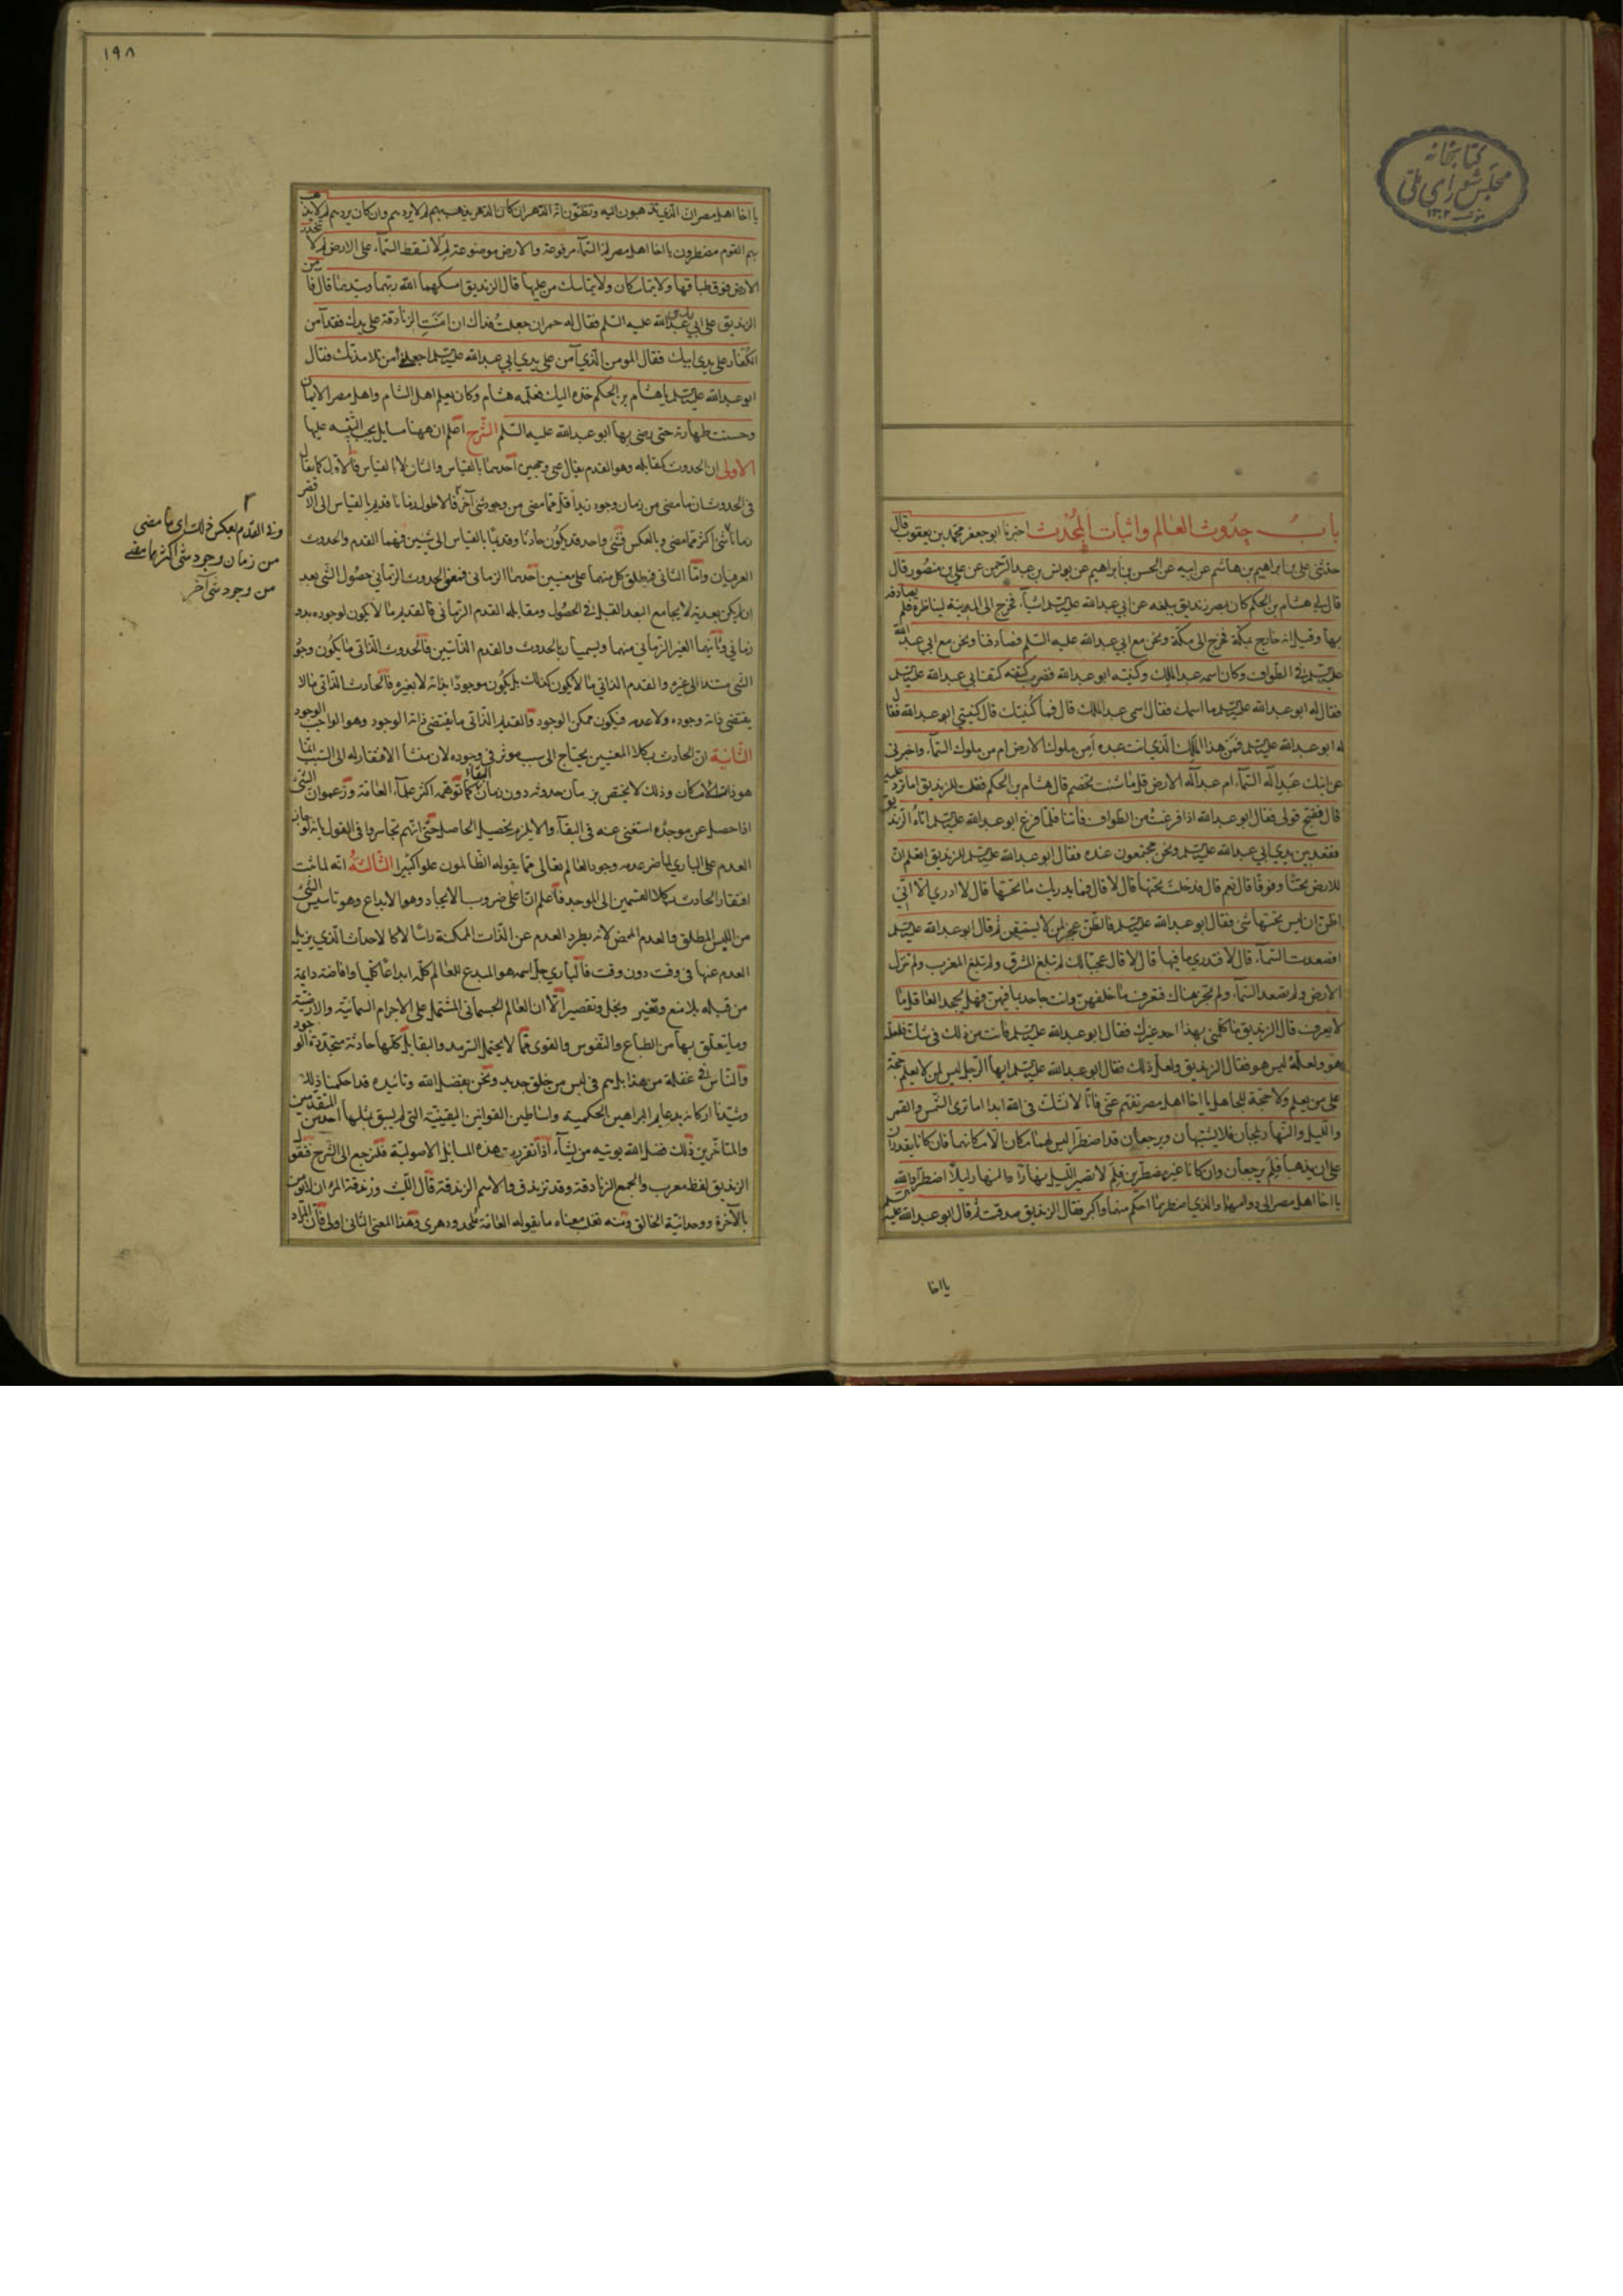 كتابخانه
مجلس شورای ملی
باب حدوث العالم واثبات المحدث اخبرنا ابو جعفر محمد بن يعقوب قال
حدثنی علی بن ابراهيم بن هاشم عن ابيه عن الحسن بن ابراهيم عن يونس بن عبد الرحمن عن علی بن منصور قال
قال لی هشام بن الحكم كان بمصر زنديق يبلغه عن ابی عبد الله عليه السلم اشيآء فخرج الى المدينة ليناظره فلم يصادفه
بها وقيل انه خارج بمكة فخرج الى مكة ونحن مع ابی عبد الله عليه السلم فصادفنا ونحن مع ابی عبد الله
عليه السلم فی الطواف وكان اسمه عبد الملك وكنيته ابو عبد الله فضرب كتفه كتف ابی عبد الله عليه السلم
فقال له ابو عبد الله عليه السلم ما اسمك فقال اسمی عبد الملك قال فما كنيتك قال كنيتی ابو عبد الله فقال
له ابو عبد الله عليه السلم فمن هذا الملك الذی انت عبده أمن ملوك الارض ام من ملوك السمآء واخبرنی
عن ابنك عبد اله السمآء ام عبد اله الارض قل ما شئت تخصم قال هشام بن الحكم فقلت للزنديق اما ترد عليه
قال فقبح قولی فقال ابو عبد الله اذا فرغت من الطواف فأتنا فلما فرغ ابو عبد الله عليه السلم اتاه الزنديق
فقعد بين يدی ابی عبد الله عليه السلم ونحن مجتمعون عنده فقال ابو عبد الله عليه السلم للزنديق اتعلم ان
للارض تحتا وفوقا قال نعم قال فدخلت تحتها قال لا قال فما يدريك ما تحتها قال لا ادری الا انی
اظن ان ليس تحتها شئ فقال ابو عبد الله عليه السلم فالظن عجز لمن لا يستيقن ثم قال ابو عبد الله عليه السلم
افصعدت السمآء قال لا قال افتدری ما فيها قال لا قال عجبا لك لم تبلغ المشرق ولم تبلغ المغرب ولم تنزل
الارض ولم تصعد السمآء ولم تجز هناك فتعرف ما خلفهن وانت جاحد بما فيهن وهل يجحد العاقل ما
لا يعرف قال الزنديق ما كلمنی بهذا احد غيرك فقال ابو عبد الله عليه السلم فانت من ذلك فی شك فلعله
هو ولعله ليس هو فقال الزنديق ولعل ذلك فقال ابو عبد الله عليه السلم ايها الرجل ليس لمن لا يعلم حجة
على من يعلم ولا حجة للجاهل يا اخا اهل مصر تفهم عنی فانا لا نشك فی الله ابدا اما ترى الشمس والقمر
والليل والنهار يلجان فلا يشتبهان ويرجعان قد اضطرا ليس لهما مكان الا مكانهما فان كانا يقدران
على ان يذهبا فلم يرجعان وان كانا غير مضطرين فلم لا يصير الليل نهارا والنهار ليلا اضطرا والله
يا اخا اهل مصر الى دوامهما والذی اضطرهما احكم منهما واكبر فقال الزنديق صدقت ثم قال ابو عبد الله عليه السلم
يا اخا
١٩٨
يا اخا اهل مصر ان الذی تذهبون اليه وتظنون انه الدهر ان كان الدهر يذهب بهم لم لا يردهم وان كان يردهم لم لا يذهب
بهم القوم مضطرون يا اخا اهل مصر لم السمآء مرفوعة والارض موضوعة لم لا تسقط السمآء على الارض لم لا تنحدر
الارض فوق طباقها ولا يتماسكان ولا يتماسك من عليها قال الزنديق امسكهما الله ربهما وسيدهما قال فآمن
الزنديق على يدی ابی عبد الله عليه السلم فقال له حمران جعلت فداك ان امنت الزنادقة على يدك فقد آمن
الكفار على يدی ابيك فقال المومن الذی آمن على يدی ابی عبد الله عليه السلم اجعلنی من تلامذتك فقال
ابو عبد الله عليه السلم يا هشام بن الحكم خذه اليك فعلمه هشام وكان معلم اهل الشام واهل مصر الايمان
وحسنت طهارته حتى رضی بها ابو عبد الله عليه السلم الشرح اعلم ان ههنا مسايل يجب التنبيه عليها
الاولى ان الحدوث كمقابله وهو القدم يقال على وجهين احدهما بالقياس والثانی لا بالقياس فالاول كما يقال
فی الحدوث ان ما مضى من زمان وجود زيد اقل مما مضى من وجود شئ آخر فالاطول زمانا قديم بالقياس الى الاقصر
زمانا شئ اكثر مما مضى وبالعكس فشئ واحد قد يكون حادثا وقديما بالقياس الى شيئين فهما القدم والحدوث
العرفيان واما الثانی فيطلق كل منهما على معنيين احدهما الزمانی فمعنى الحدوث الزمانی حصول الشئ بعد
ان لم يكن بعدية لا يجامع البعد القبل فی الحصول ومقابله القدم الزمانی فالقديم ما لا يكون لوجوده بدو
زمانی وثانيهما الغير الزمانی منهما ويسميان بالحدوث والقدم الذاتيين فالحدوث الذاتی ما يكون وجود
الشئ مستندا الى غيره والقدم الذاتی ما لا يكون كذلك بل يكون موجودا بذاته لا بغيره فالحادث الذاتی ما لا
يقتضی ذاته وجوده ولا عدمه فيكون ممكن الوجود والقديم الذاتی ما يقتضی ذاته الوجود وهو الواجب الوجود
الثانية ان الحادث بكلا المعنيين يحتاج الى سبب موثر فی وجوده لان منشأ الافتقار له الى السبب
هو ذاته الامكان وذلك لا يختص بزمان حدوثه دون زمان البقاء كما توهمه اكثر علمآء العامة وزعموا ان الشئ
اذا حصل عن موجده استغنى عنه فی البقآء والا يلزم تحصيل الحاصل حتى انهم تجاسروا فی القول بانه لو جاز
العدم على الباری لما ضر عدمه وجود العالم تعالى عما يقوله الظالمون علوا كبيرا الثالثة انه لما ثبت
افتقار الحادث بكلا القسمين الى الموجد فاعلم ان اعلى ضروب الايجاد وهو الابداع وهو تاسيس الشئ
من الليس المطلق والعدم المحض لانه يطرد العدم عن الذات الممكنة راسا لا كالاحداث الذی يزيل
العدم عنها فی وقت دون وقت فالباری جل اسمه هو المبدع للعالم كله ابداعا كليا وافاضة دايمة
من قبله بلا منع وتغير وبخل وتقصير الا ان العالم الجسمانی المشتمل على الاجرام السمائية والارضية
وما يتعلق بها من الطباع والنفوس والقوى مما لا يحتمل السرمد والبقا بل كلها حادثة متجددة الوجود
والناس فی غفلة من هذا بل هم فی لبس من خلق جديد ونحن بفضل الله وتائيده قد احكمنا ذلك
وشيدنا اركانه بدعايم البراهين الحكمية واساطين القوانين اليقينية التی لم يسبق بمثلها احد من المتقدمين
والمتاخرين ذلك فضل الله يوتيه من يشآء اذا تقررت هذه المسائل الاصولية فلنرجع الى الشرح فنقول
الزنديق لفظ معرب والجمع الزنادقة وقد تزندق والاسم الزندقة قال الليث وزندقة المرء ان لا يومن
بالآخرة ووحدانية الخالق ومنه نقل معناه ما يقوله العامة ملحد ودهری وهذا المعنى الثانی اولى فان المراد
وفی القدم بعكس ذلك ای ما مضى
من زمان وجود شئ اكثر مما مضى
من وجود شئ آخر